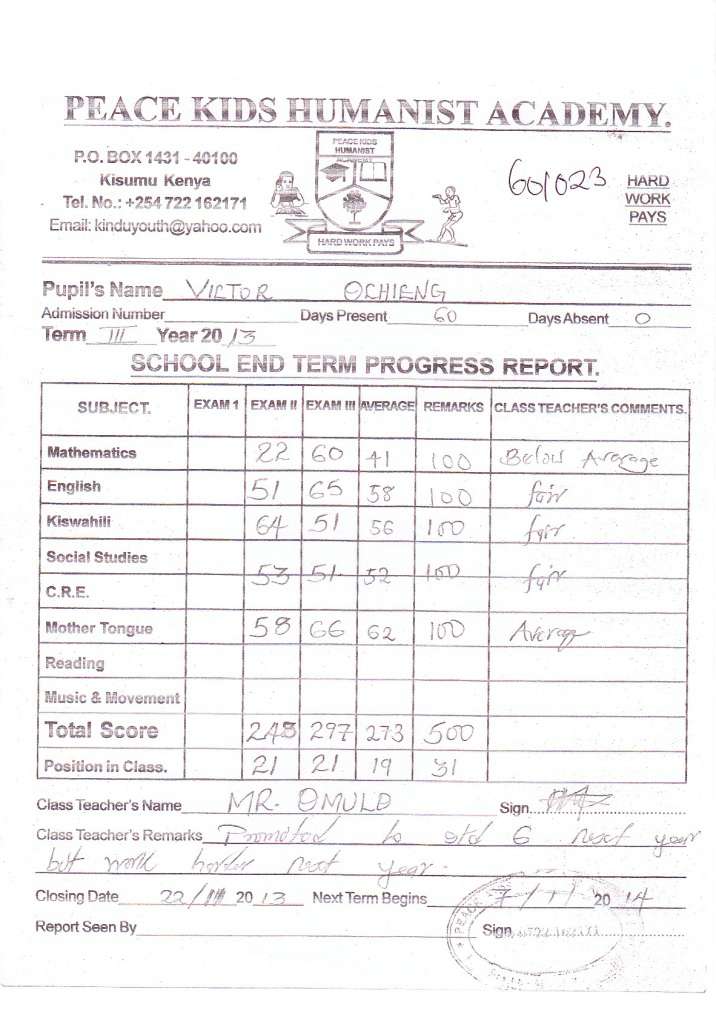 PEACE KIDS HUMANIST ACADEMY.
P.O. BOX 1431 - 40100
Kisumu Kenya
Tel. No.: +254 722 162171
Email: kinduyouth@yahoo.com
PEACE KIDS
HUMANIST
ACADEMY
HARD WORK PAYS
601023
HARD
WORK
PAYS
Pupil's Name VICTOR OCHIENG
Admission Number Days Present 60 Days Absent 0
Term III Year 20 13
SCHOOL END TERM PROGRESS REPORT.
SUBJECT. EXAM 1 EXAM II EXAM III AVERAGE REMARKS CLASS TEACHER'S COMMENTS.
Mathematics 22 60 41 100 Below Average
English 51 65 58 100 fair
Kiswahili 64 51 56 100 fair
Social Studies
53 51 52 100 fair
C.R.E.
Mother Tongue 58 66 62 100 Average
Reading
Music & Movement
Total Score 248 297 273 500
Position in Class. 21 21 19 31
Class Teacher's Name MR. OMULO Sign
Class Teacher's Remarks Promoted to std 6 next year
but work harder next year.
Closing Date 22/11/ 20 13 Next Term Begins 7/1/ 20 14
Report Seen By Sign
PEACE